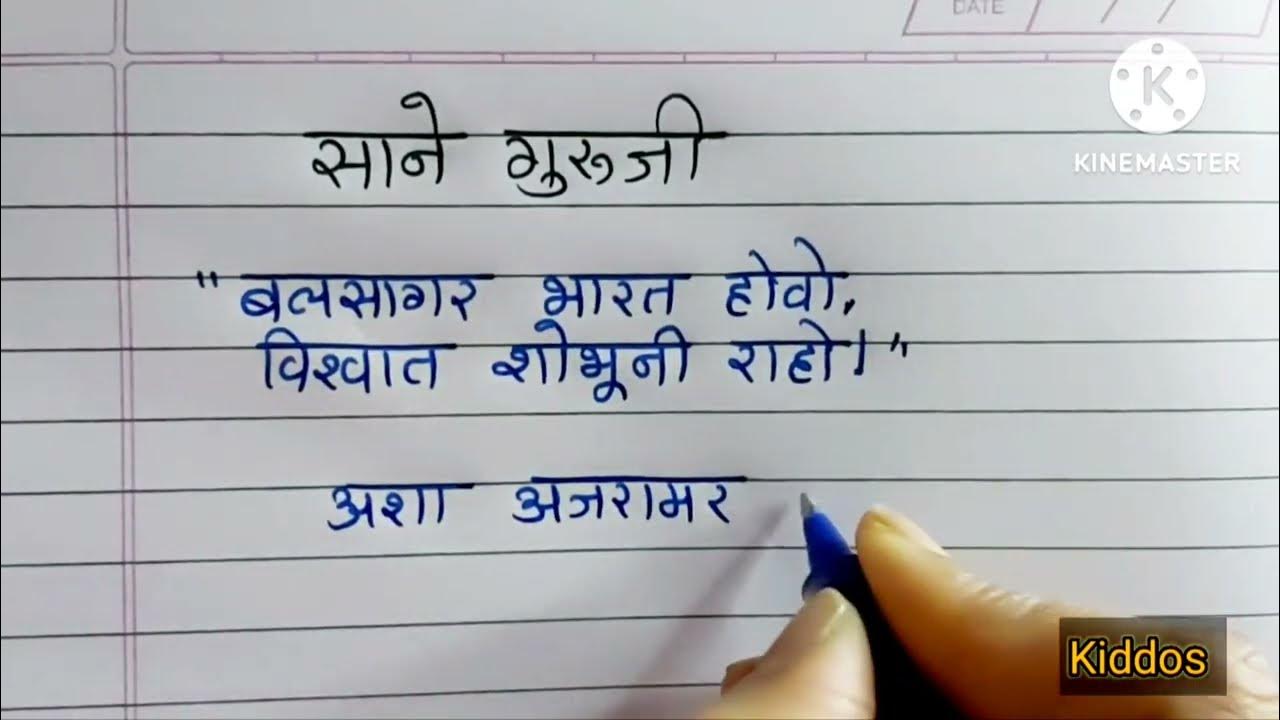 DATE / /
K
KINEMASTER
साने गुरुजी
"बलसागर भारत होवो,
विश्वात शोभूनी राहो।"
अशा अजरामर
Kiddos